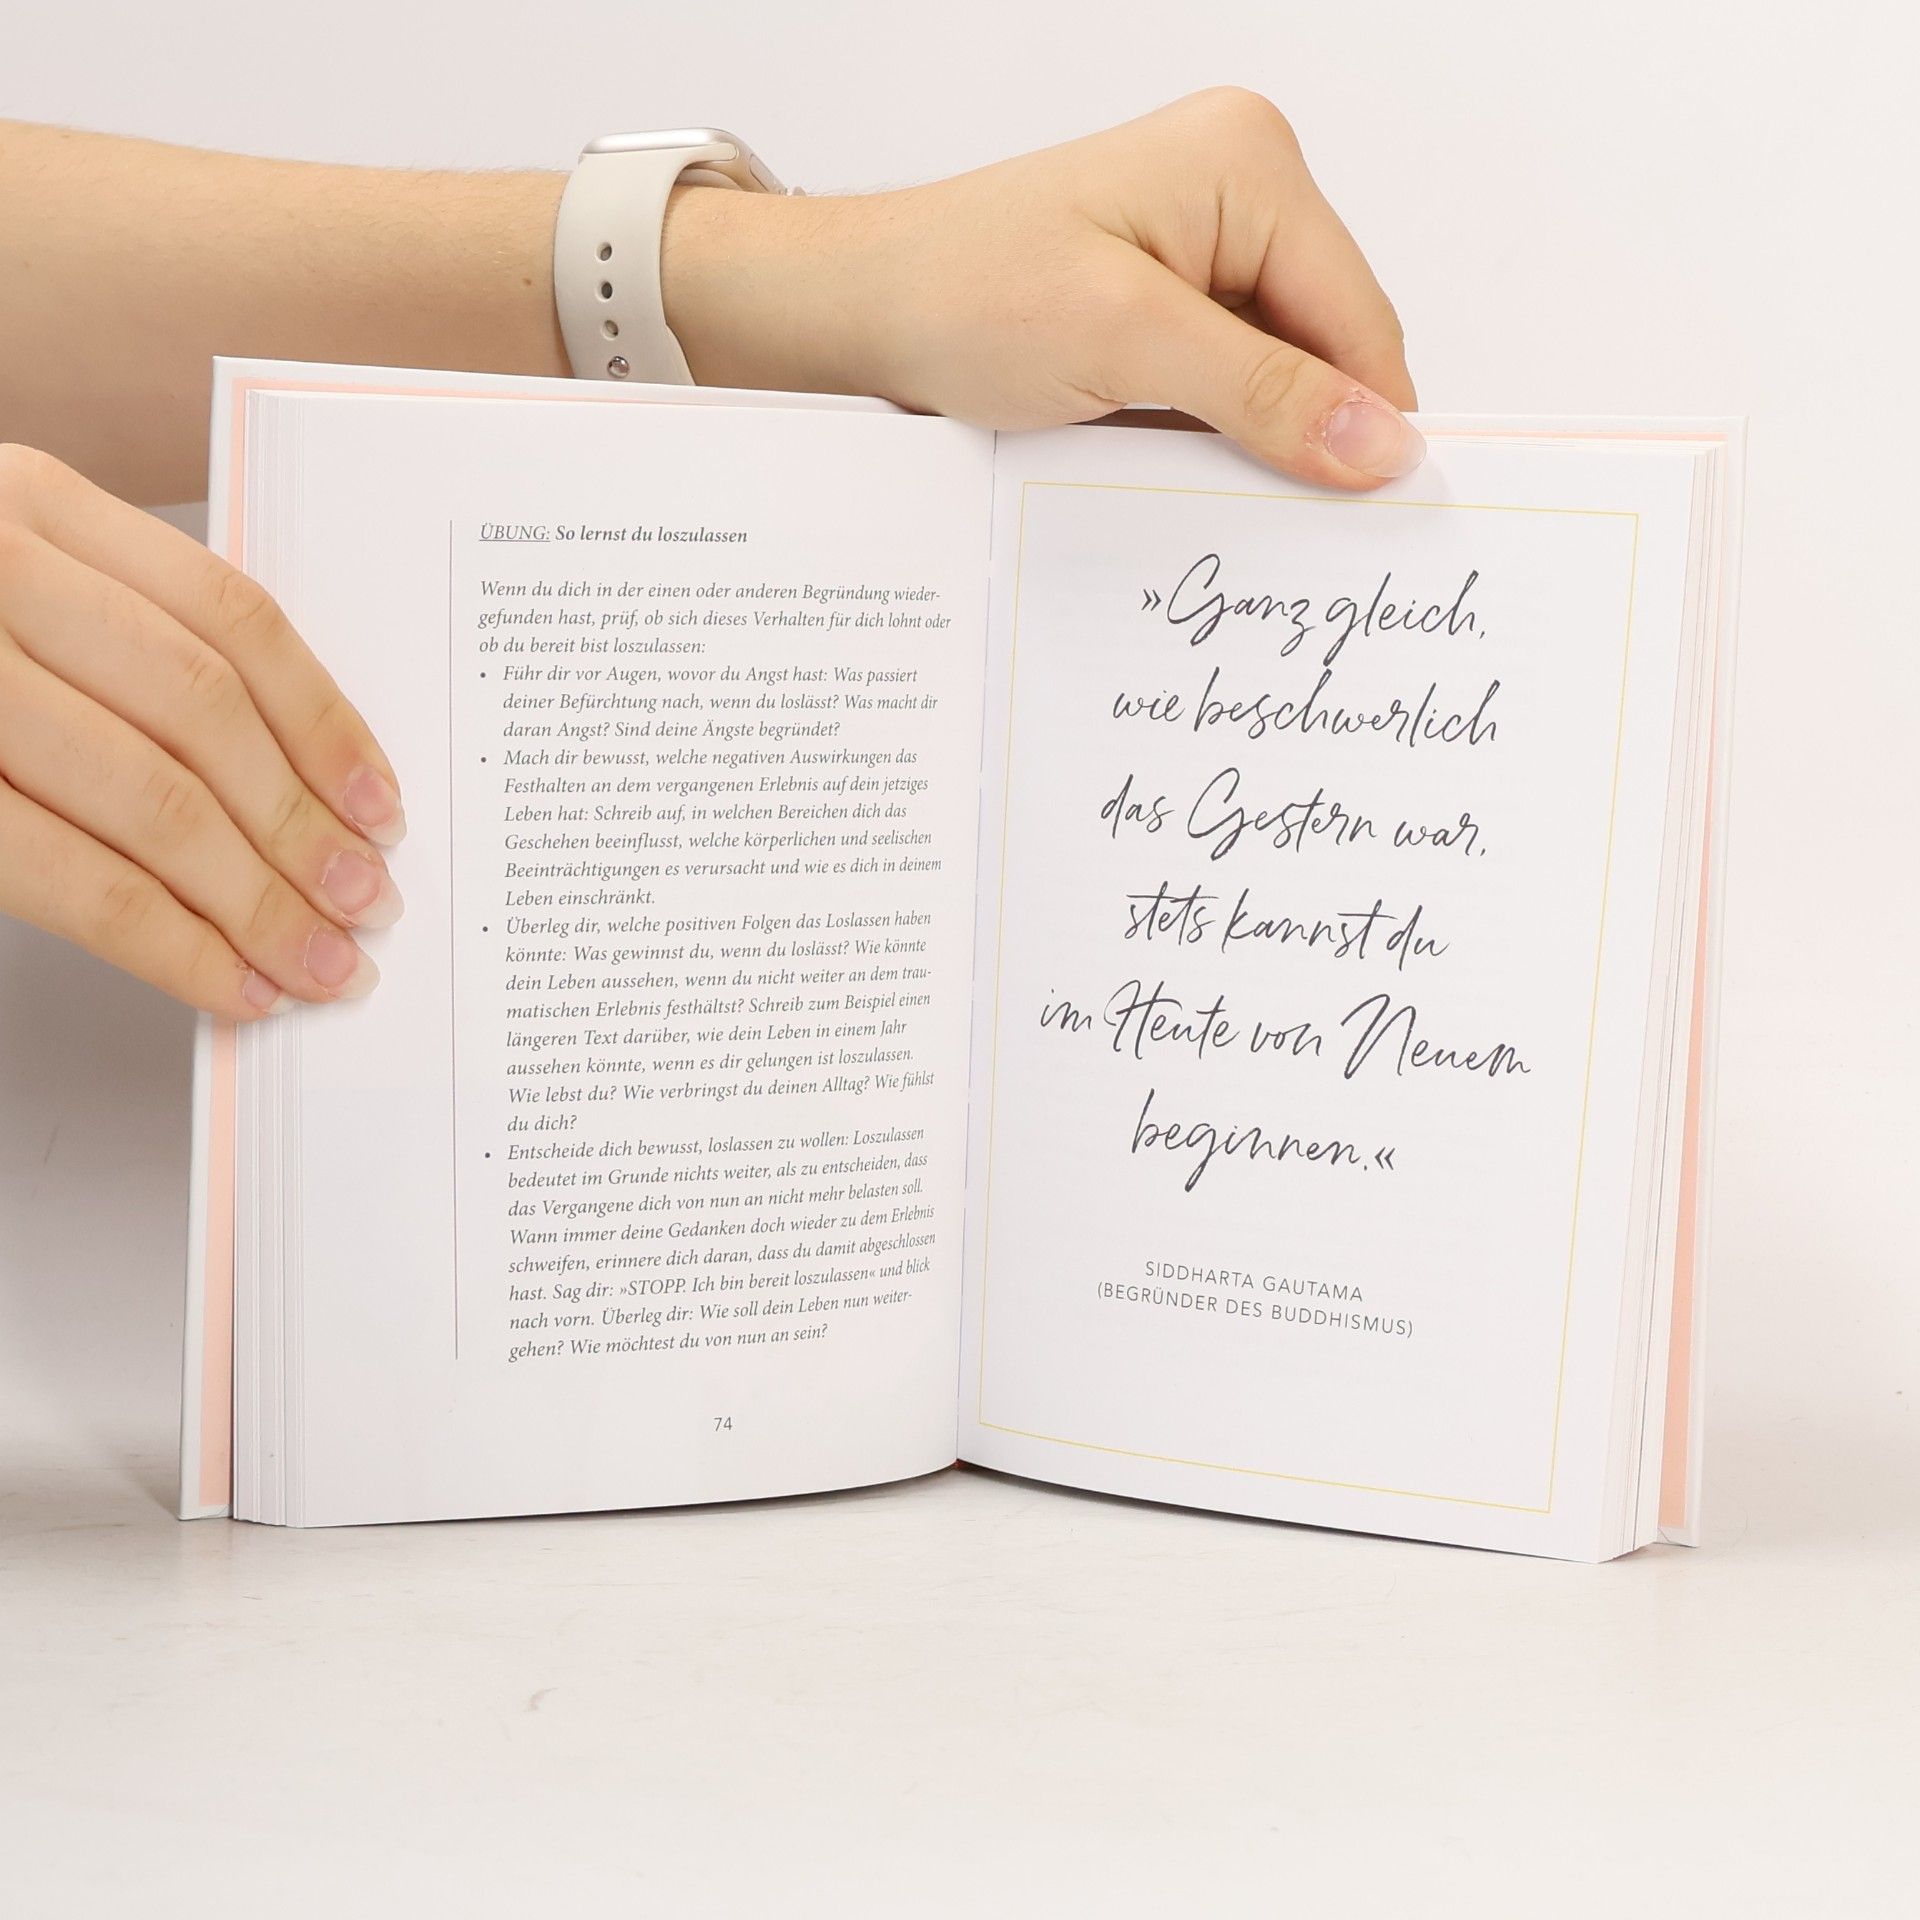 ÜBUNG: So lernst du loszulassen
Wenn du dich in der einen oder anderen Begründung wieder-
gefunden hast, prüf, ob sich dieses Verhalten für dich lohnt oder
ob du bereit bist loszulassen:
• Führ dir vor Augen, wovor du Angst hast: Was passiert
deiner Befürchtung nach, wenn du loslässt? Was macht dir
daran Angst? Sind deine Ängste begründet?
• Mach dir bewusst, welche negativen Auswirkungen das
Festhalten an dem vergangenen Erlebnis auf dein jetziges
Leben hat: Schreib auf, in welchen Bereichen dich das
Geschehen beeinflusst, welche körperlichen und seelischen
Beeinträchtigungen es verursacht und wie es dich in deinem
Leben einschränkt.
• Überleg dir, welche positiven Folgen das Loslassen haben
könnte: Was gewinnst du, wenn du loslässt? Wie könnte
dein Leben aussehen, wenn du nicht weiter an dem trau-
matischen Erlebnis festhältst? Schreib zum Beispiel einen
längeren Text darüber, wie dein Leben in einem Jahr
aussehen könnte, wenn es dir gelungen ist loszulassen.
Wie lebst du? Wie verbringst du deinen Alltag? Wie fühlst
du dich?
• Entscheide dich bewusst, loslassen zu wollen: Loszulassen
bedeutet im Grunde nichts weiter, als zu entscheiden, dass
das Vergangene dich von nun an nicht mehr belasten soll.
Wann immer deine Gedanken doch wieder zu dem Erlebnis
schweifen, erinnere dich daran, dass du damit abgeschlossen
hast. Sag dir: »STOPP. Ich bin bereit loszulassen« und blick
nach vorn. Überleg dir: Wie soll dein Leben nun weiter-
gehen? Wie möchtest du von nun an sein?
74
»Ganz gleich,
wie beschwerlich
das Gestern war,
stets kannst du
im Heute von Neuem
beginnen.«
SIDDHARTA GAUTAMA
(BEGRÜNDER DES BUDDHISMUS)